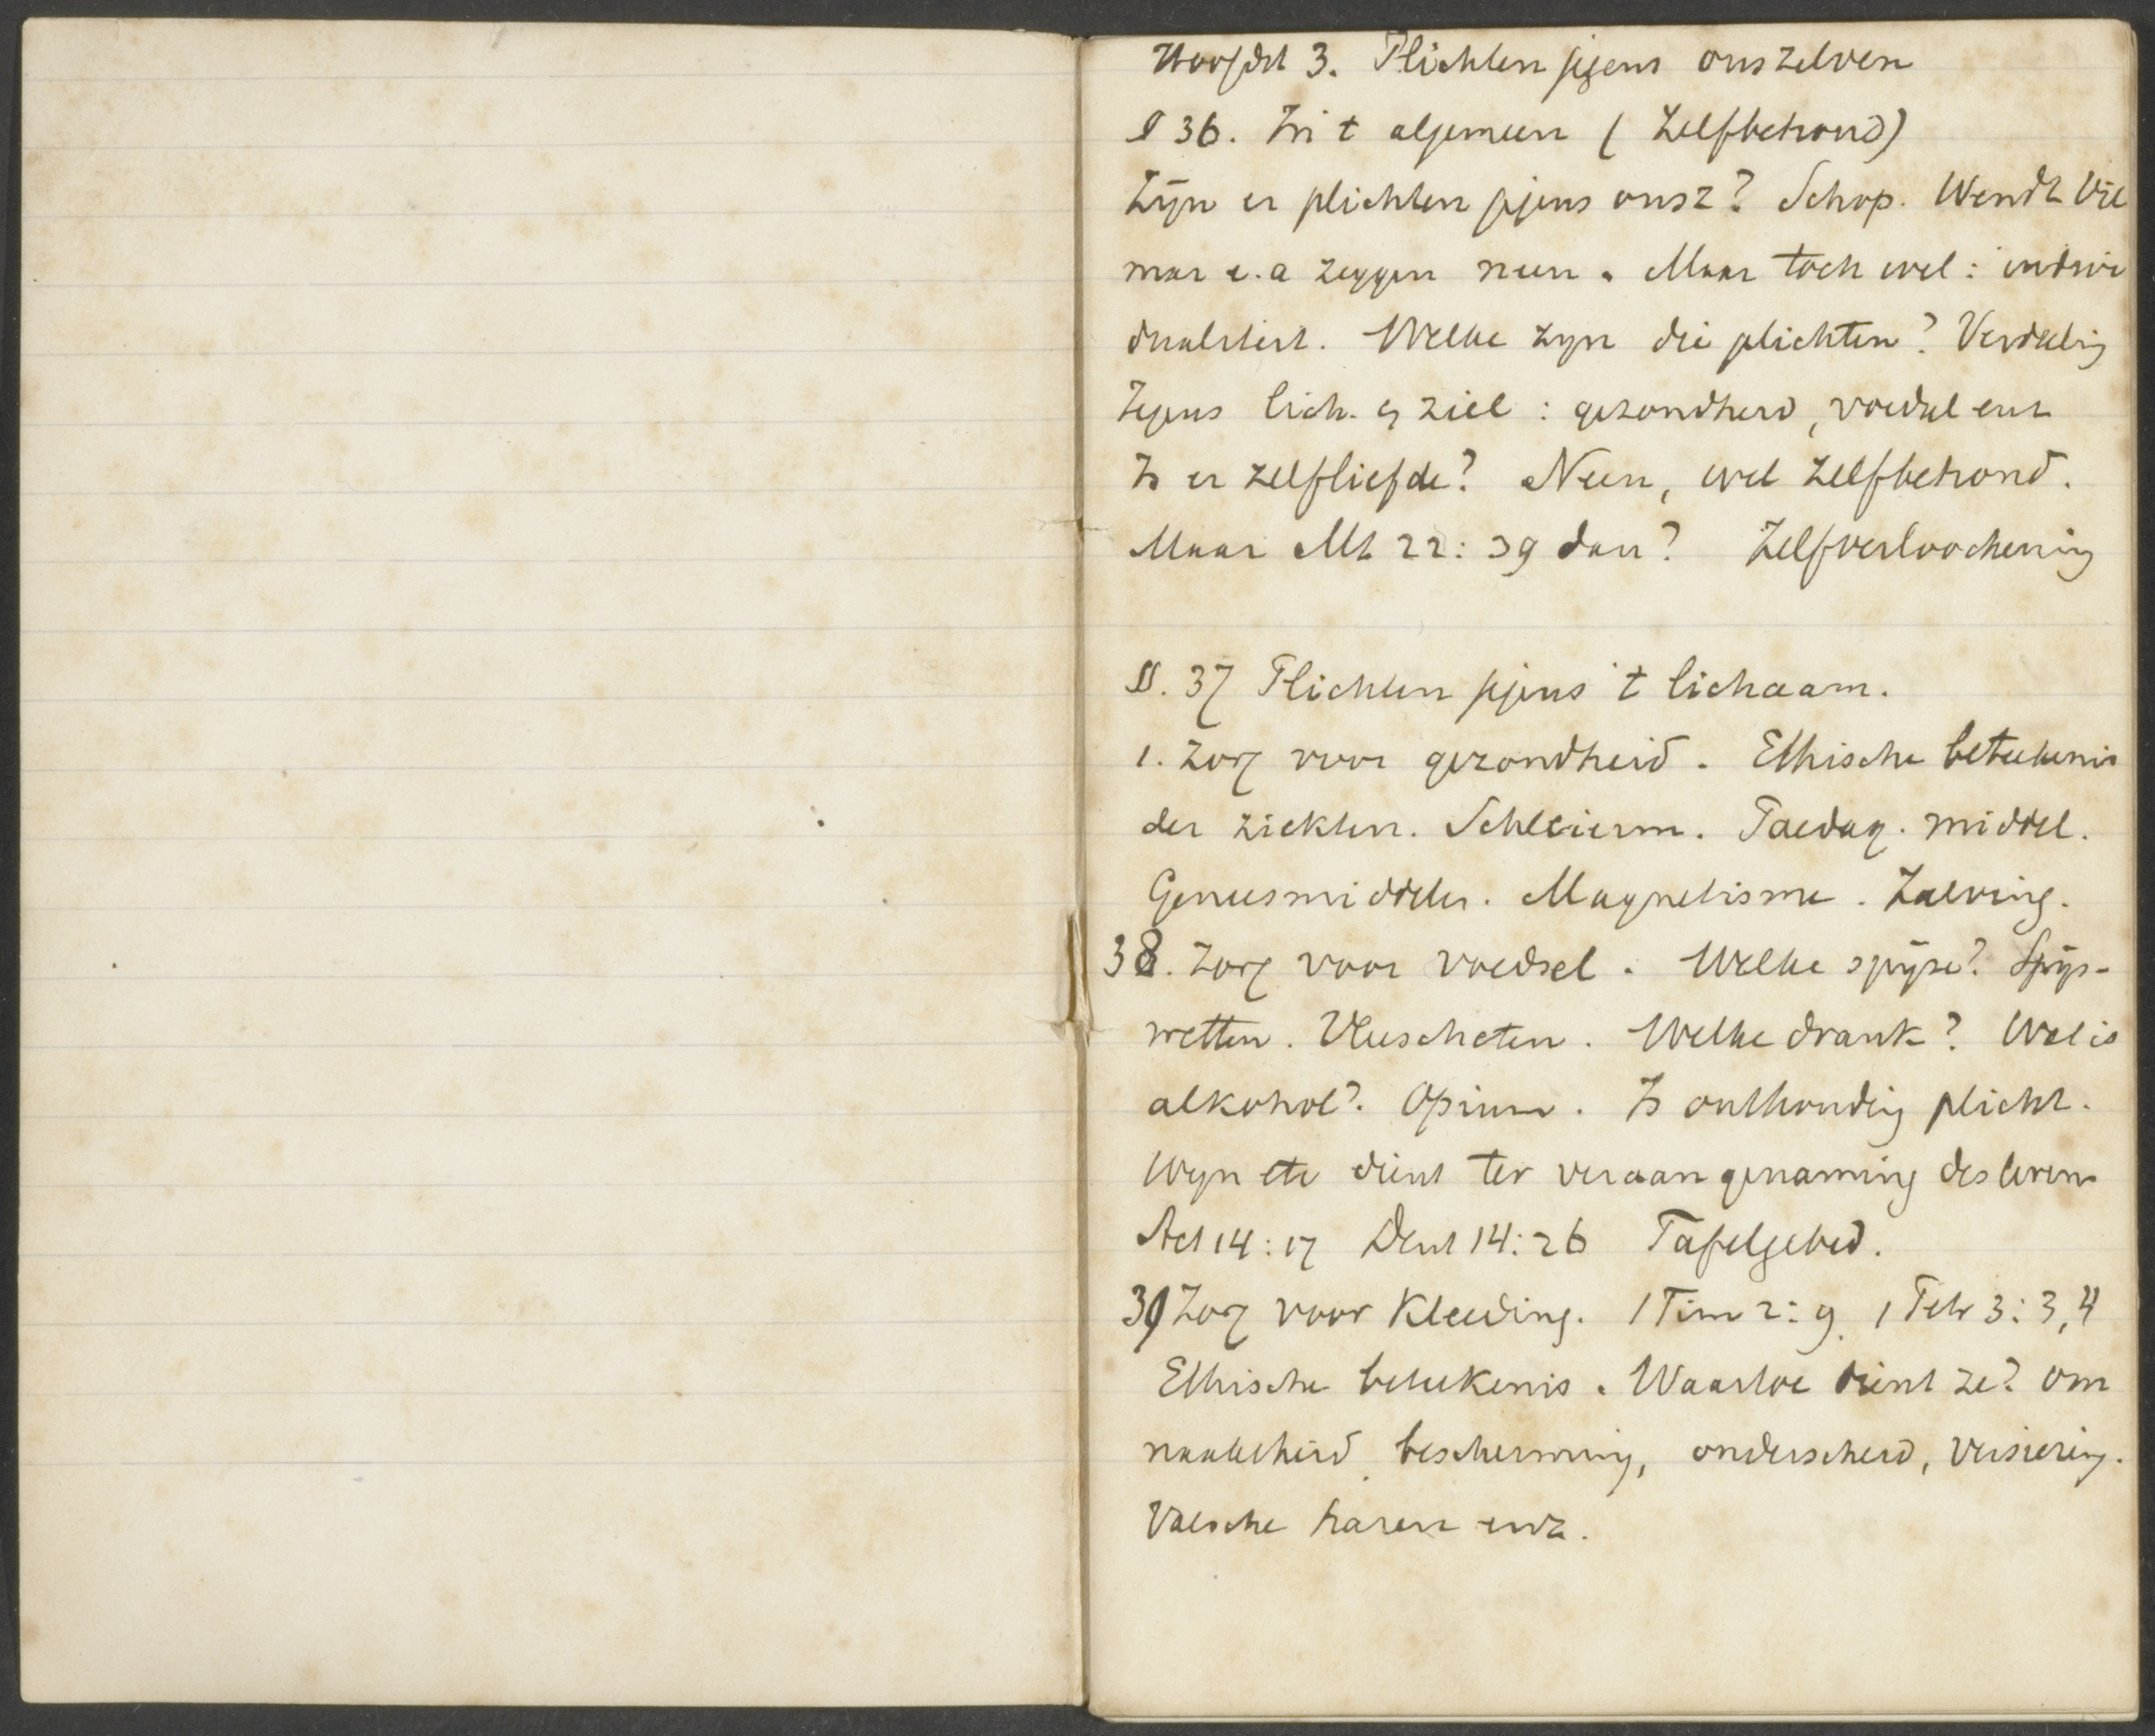 Hoofdst 3. Plichten jegens onszelven
§ 36. In 't algemeen (Zelfbehoud)
Zijn er plichten jegens onsz? Schop. Wendt Vil
mar e.a zeggen neen. Maar toch wel: indivi
dualiteit. Welke zyn die plichten? Verdeeling
Jegens lich. en ziel: gezondheid, voedsel enz
Is er zelfliefde? Neen, wel zelfbehoud.
Maar Mt 22:39 dan? Zelfverloochening
§. 37 Plichten jegens 't lichaam.
1. Zorg voor gezondheid. Ethische beteekenis
der ziekten. Schleierm. Paedag. middel.
Geneesmiddelen. Magnetisme. Zalving.
38. Zorg voor voedsel. Welke spijze? Spijs-
wetten. Vleescheten. Welke drank? Wat is
alkohol? Opium. Is onthouding plicht.
Wijn etc dient ter veraangenaming des levens
Act 14:17 Deut 14:26 Tafelgebed.
39 Zorg voor Kleeding. 1 Tim 2:9. 1 Petr 3:3,4
Ethische beteekenis. Waartoe dient ze? Om
naaktheid, bescherming, onderscheid, versiering.
Valsche haren enz.